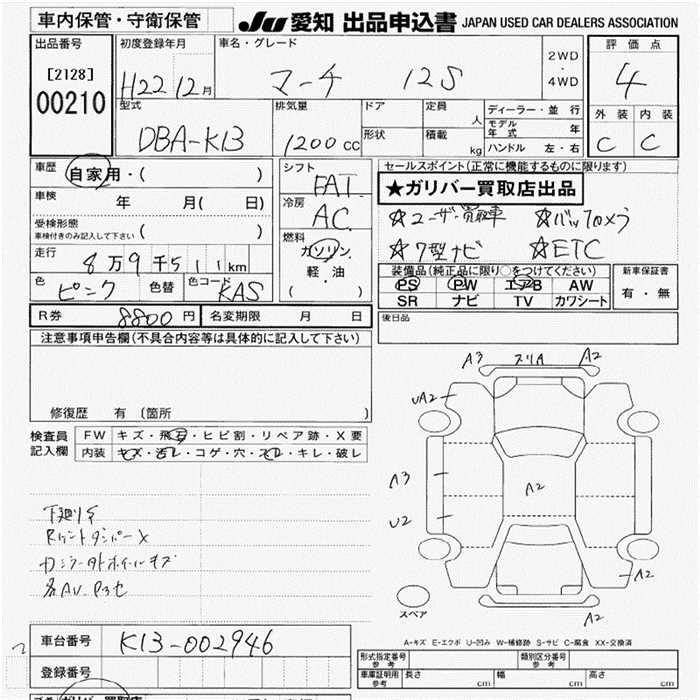 車内保管・守衛保管
JU 愛知 出品申込書 JAPAN USED CAR DEALERS ASSOCIATION
出品番号
[2128]
00210
初度登録年月
H22 12月
車名・グレード
マーチ 12S
2WD
・
4WD
評価点
4
外装 内装
C C
型式
DBA-K13
排気量
1200 cc
ドア
形状
定員
人
積載
kg
ディーラー・並行
モデル年式 年
ハンドル 左・右
車歴
自家用・( )
車検 年 月( 日)
受検形態
車検付きのみ記入して下さい ( )
走行
8万9千511km
色 ピンク 色替 色コード KAS
シフト
FAT
冷房
AC
燃料
ガソリン
軽・油
( )
セールスポイント(正常に機能するものに限ります)
★ガリバー買取店出品
☆ユーザー買取車 ☆バックカメラ
☆7型ナビ ☆ETC
装備品(純正品に限り○をつけてください)
PS PW エアB AW
SR ナビ TV カワシート
新車保証書
有・無
R券 8800円 名変期限 月 日
後日品
注意事項申告欄(不具合内容等は具体的に記入して下さい)
修復歴 有 (箇所 )
検査員
記入欄
FW キズ・飛石・ヒビ割・リペア跡・X要
内装 キズ・汚レ・コゲ・穴・スレ・キレ・破レ
下廻りサ
A3 スリA A2
UA2
A3
A2
U2
A2
A2
スペア
A-キズ E-エクボ U-凹み W-補修跡 S-サビ C-腐食 XX-交換済
車台番号 K13-002946
登録番号
形式指定番号
参考
類別区分番号
参考
車庫証明用
参考
長さ cm 幅 cm 高さ cm
ガリバー買取店